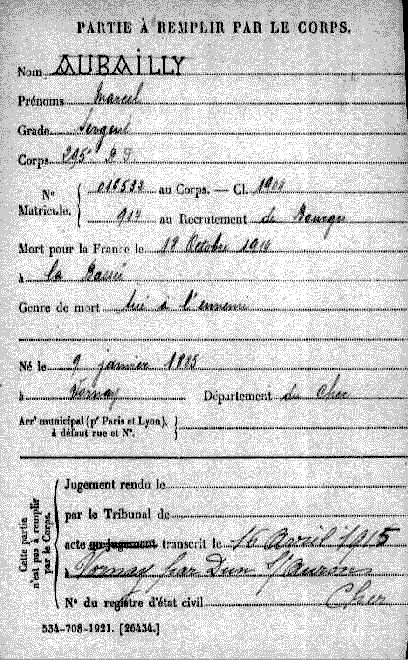 PARTIE À REMPLIR PAR LE CORPS.
Nom AUBAILLY
Prénoms Marcel
Grade Sergent
Corps 295e R I
N° Matricule. 016532 au Corps. — Cl. 1904
912 au Recrutement de Bourges
Mort pour la France le 18 Octobre 1914
à la Bassée
Genre de mort tué à l'ennemi
Né le 9 janvier 1885
à Vornay Département du Cher
Arrt municipal (pr Paris et Lyon), à défaut rue et N°.
Cette partie n'est pas à remplir par le Corps.
Jugement rendu le
par le Tribunal de
acte ou jugement transcrit le 15 Avril 1915
à Vornay par Dun S/Auron
Cher
N° du registre d'état civil
534-708-1921. [26434.]